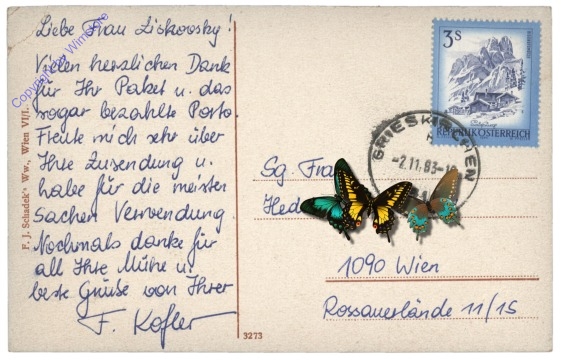 Liebe Frau Liskovsky!
Vielen herzlichen Dank
für Ihr Paket u. das
sogar bezahlte Porto.
Freute mich sehr über
Ihre Zusendung u.
habe für die meisten
Sachen Verwendung.
Nochmals danke für
all Ihre Mühe u.
beste Grüße von Ihrer
F. Kofler
Copyright by WinStore
F. J. Schadek's Ww., Wien VII/1.
3273
3 S
REPUBLIK ÖSTERREICH
GRIESKIRCHEN
-2.11.83-
Sg.
1090 Wien
Rossauerlände 11/15